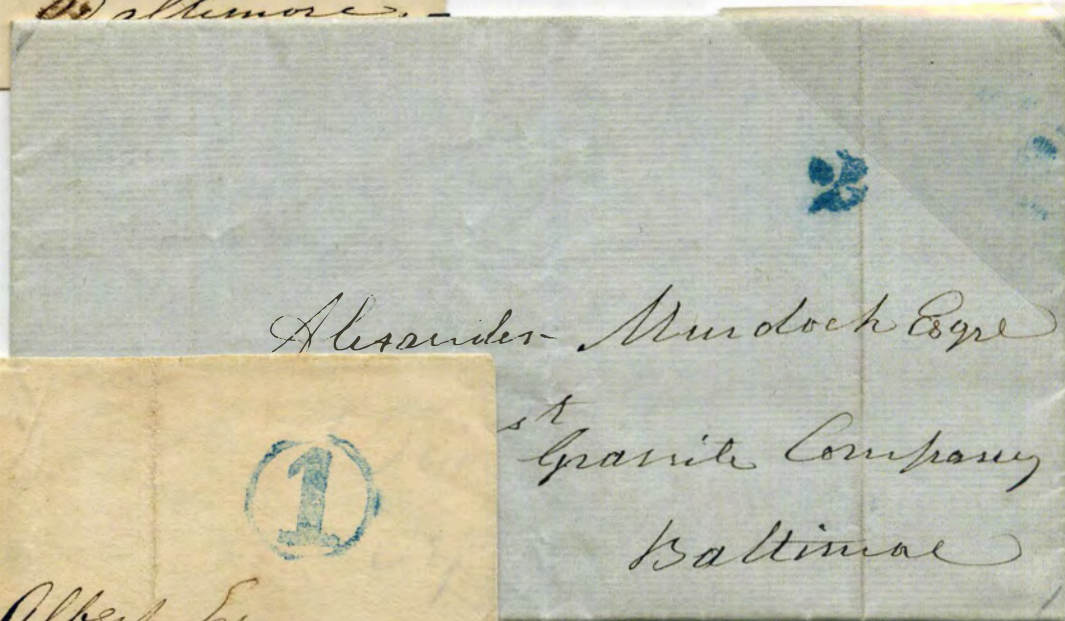 Baltimore. –
2
Alexander Murdoch Esqre
st
Granite Company
Baltimoe
1
Albert Es